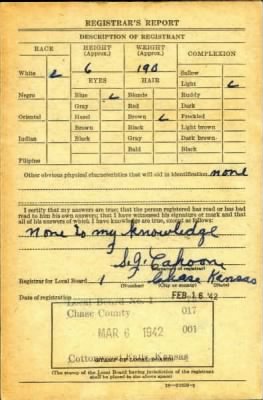 REGISTRAR'S REPORT
DESCRIPTION OF REGISTRANT
RACE HEIGHT (Approx.) WEIGHT (Approx.) COMPLEXION
White 6 190 Sallow
EYES HAIR Light
Negro Blue Blonde Ruddy
Gray Red Dark
Oriental Hazel Brown Freckled
Brown Black Light brown
Indian Black Gray Dark brown
Bald Black
Filipino
Other obvious physical characteristics that will aid in identification none
I certify that my answers are true; that the person registered has read or has had
read to him his own answers; that I have witnessed his signature or mark and that
all of his answers of which I have knowledge are true, except as follows:
None to my knowledge
S.J. Cahoon
(Signature of registrar)
Registrar for Local Board 1 Chase Kansas
(Number) (City or county) (State)
Date of registration FEB 16 '42
Local Board No. 1
Chase County 017
MAR 6 1942 001
Cottonwood Falls, Kansas
STAMP OF LOCAL BOARD
(The stamp of the Local Board having jurisdiction of the registrant
shall be placed in the above space)